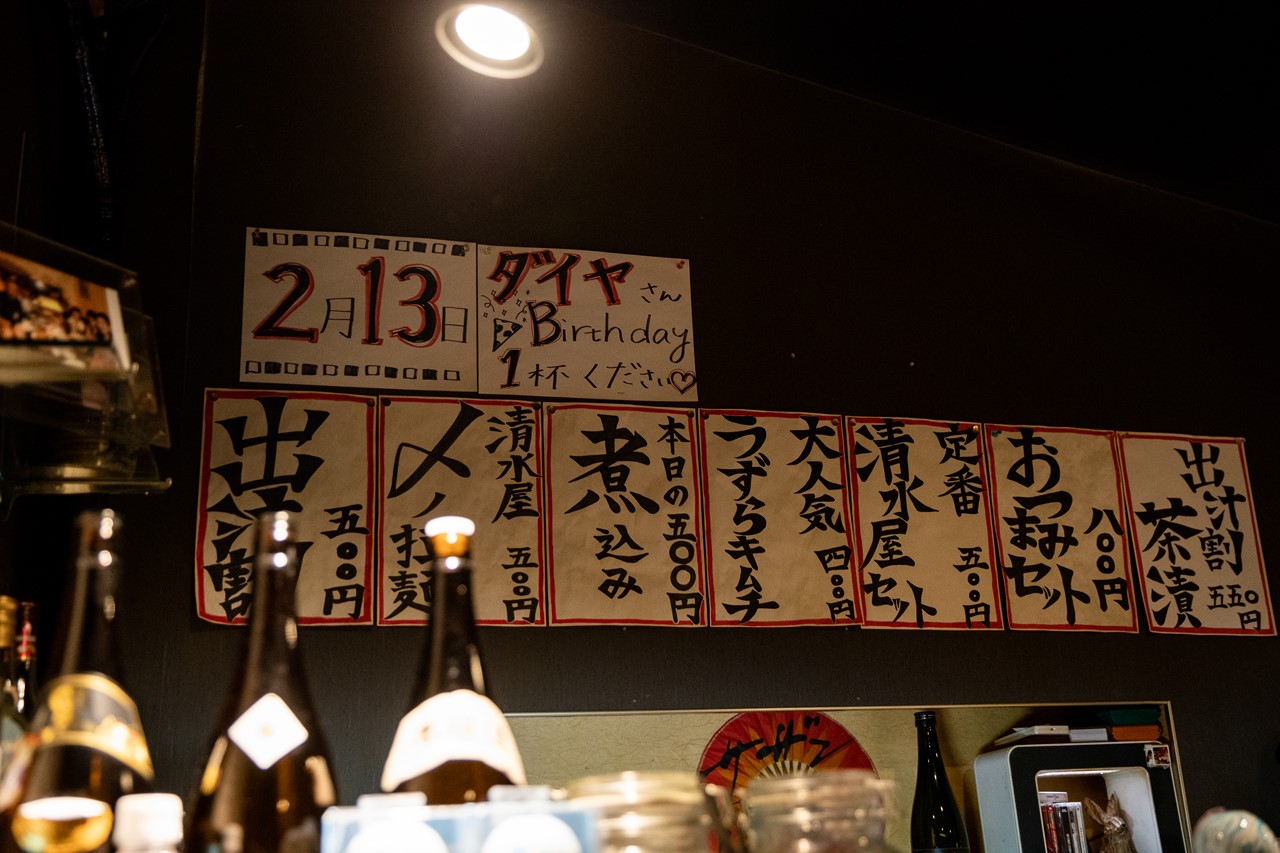 2月13日
ダイヤさん
Birthday
1杯ください
出汁割
五〇〇円
清水屋 五〇〇円
〆ノ拉麺
本日の 五〇〇円
煮込み
大人気 四〇〇円
うずらキムチ
定番 五〇〇円
清水屋セット
おつまみセット
八〇〇円
出汁割
茶漬
五五〇円
サーザン